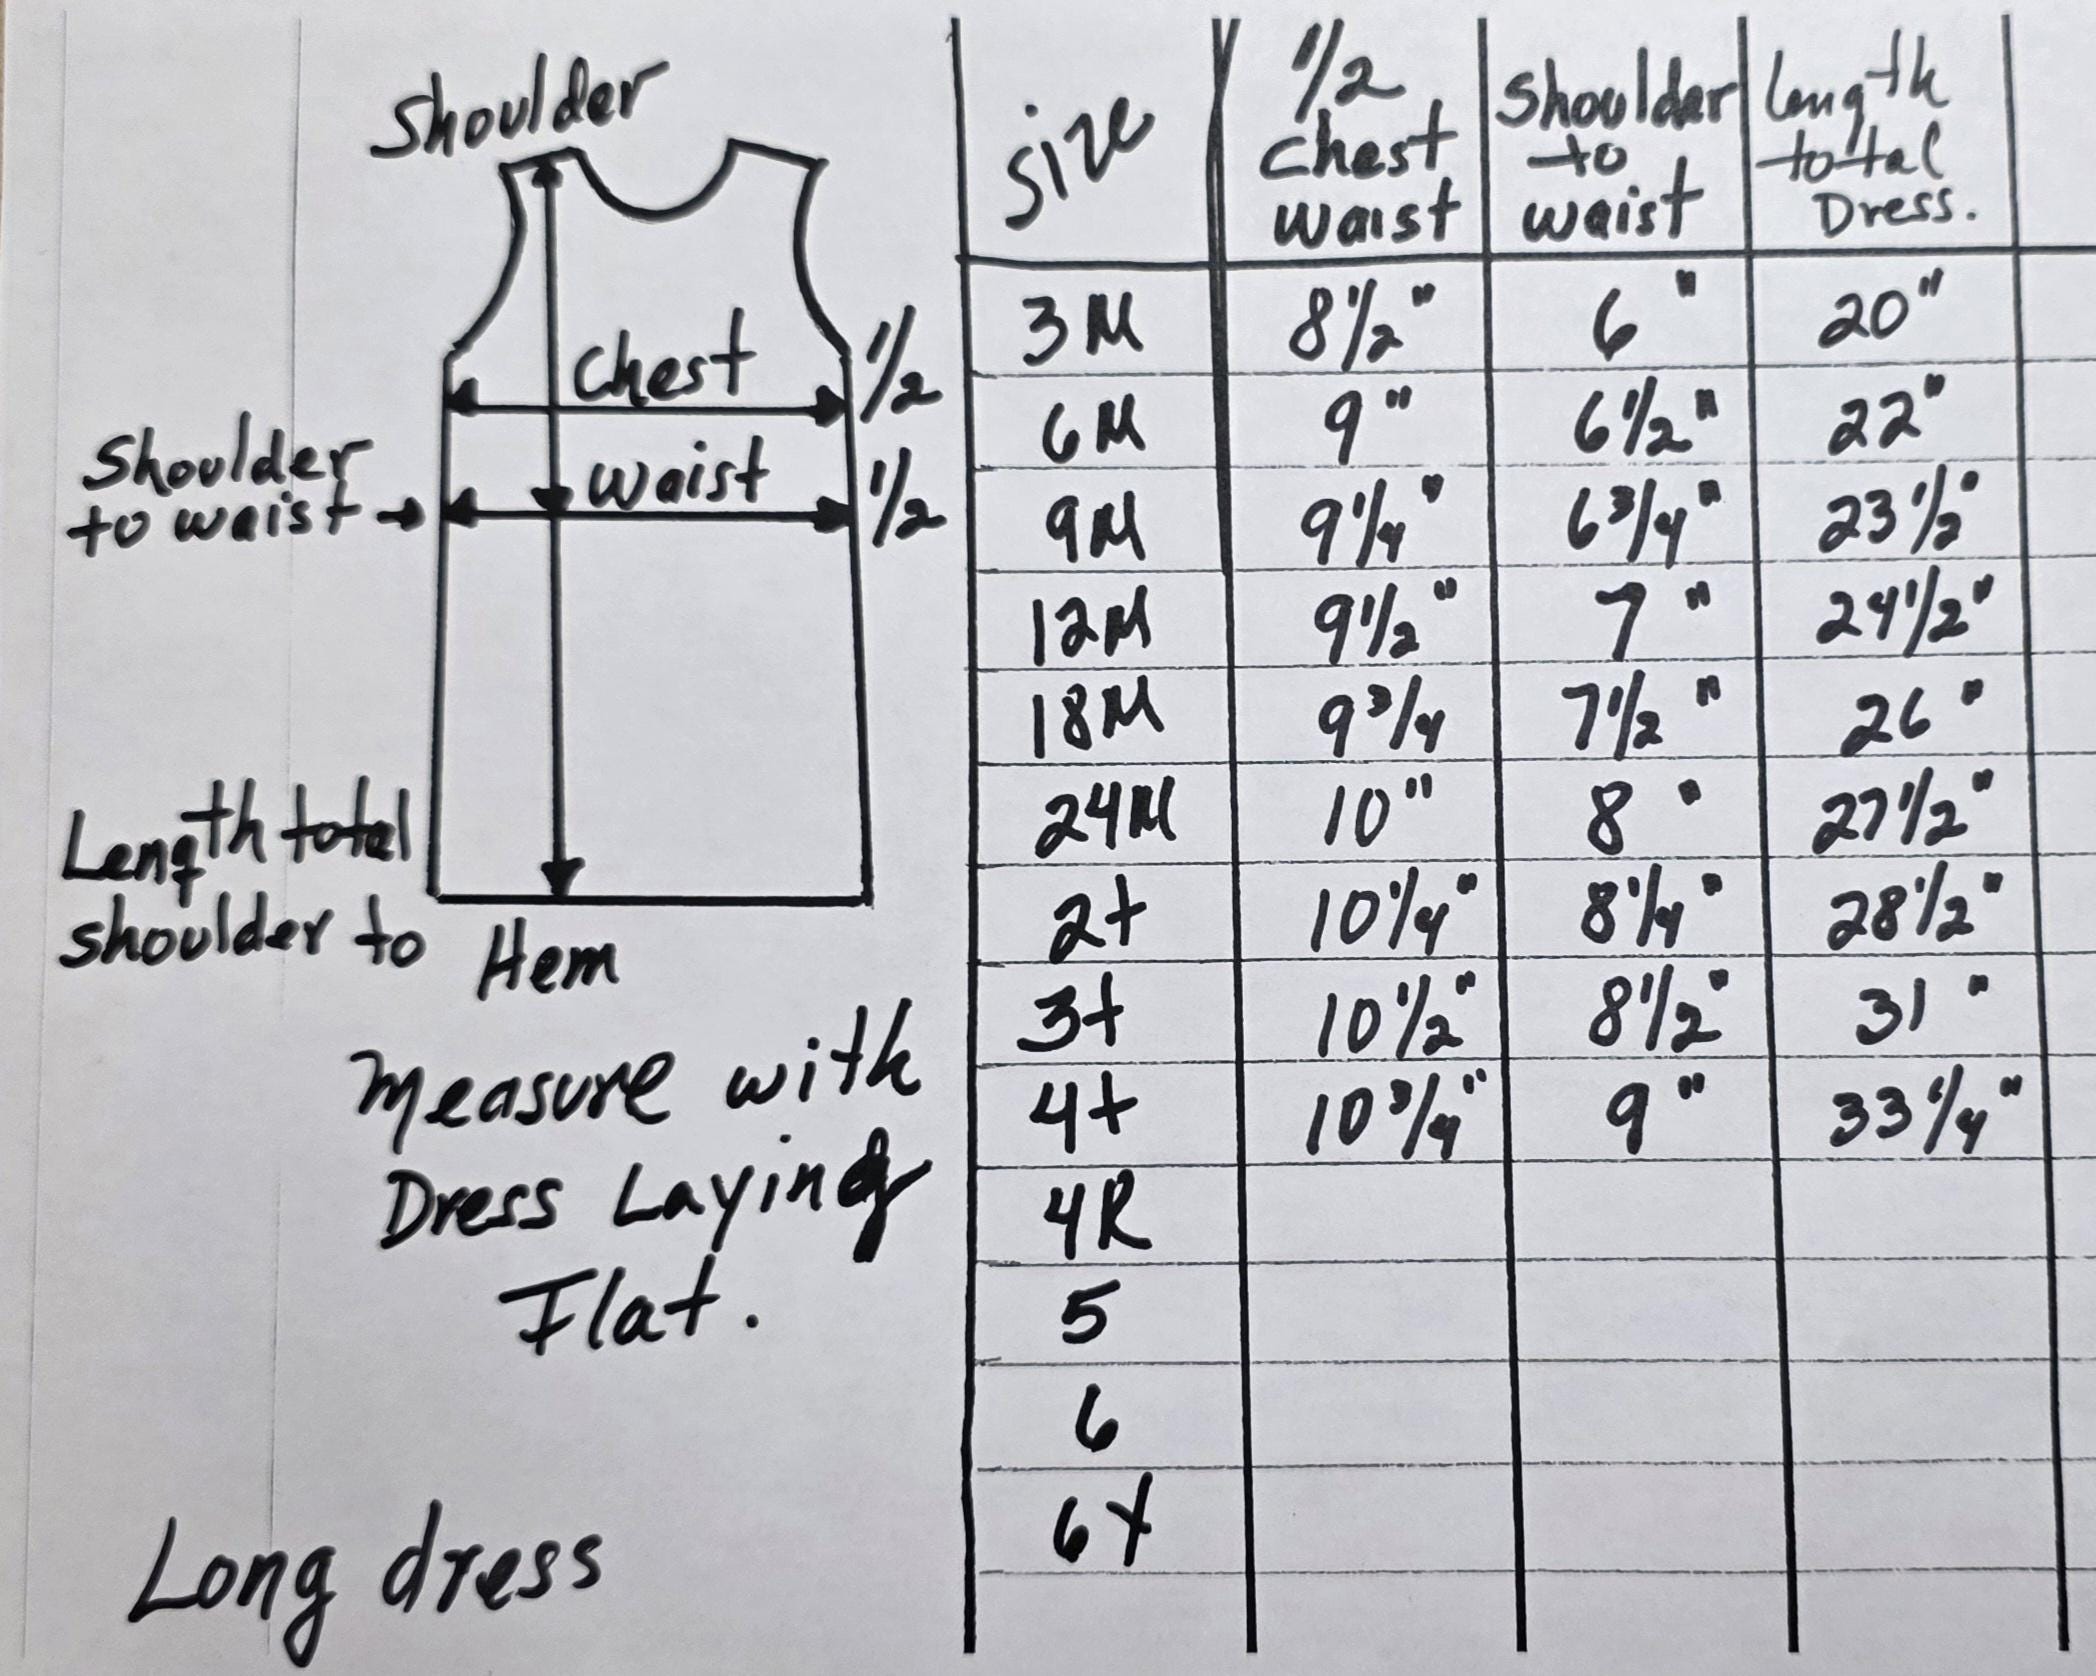 Shoulder
Chest 1/2
Shoulder
to waist → waist 1/2
Length total
shoulder to Hem
Measure with
Dress Laying
Flat.
Long dress
Size 1/2 Chest Waist Shoulder to waist Length total Dress.
3M 8 1/2" 6" 20"
6M 9" 6 1/2" 22"
9M 9 1/4" 6 3/4" 23 1/2"
12M 9 1/2" 7" 24 1/2"
18M 9 3/4 7 1/2" 26"
24M 10" 8" 27 1/2"
2t 10 1/4" 8 1/4" 28 1/2"
3t 10 1/2" 8 1/2" 31"
4t 10 3/4" 9" 33 1/4"
4R
5
6
6X